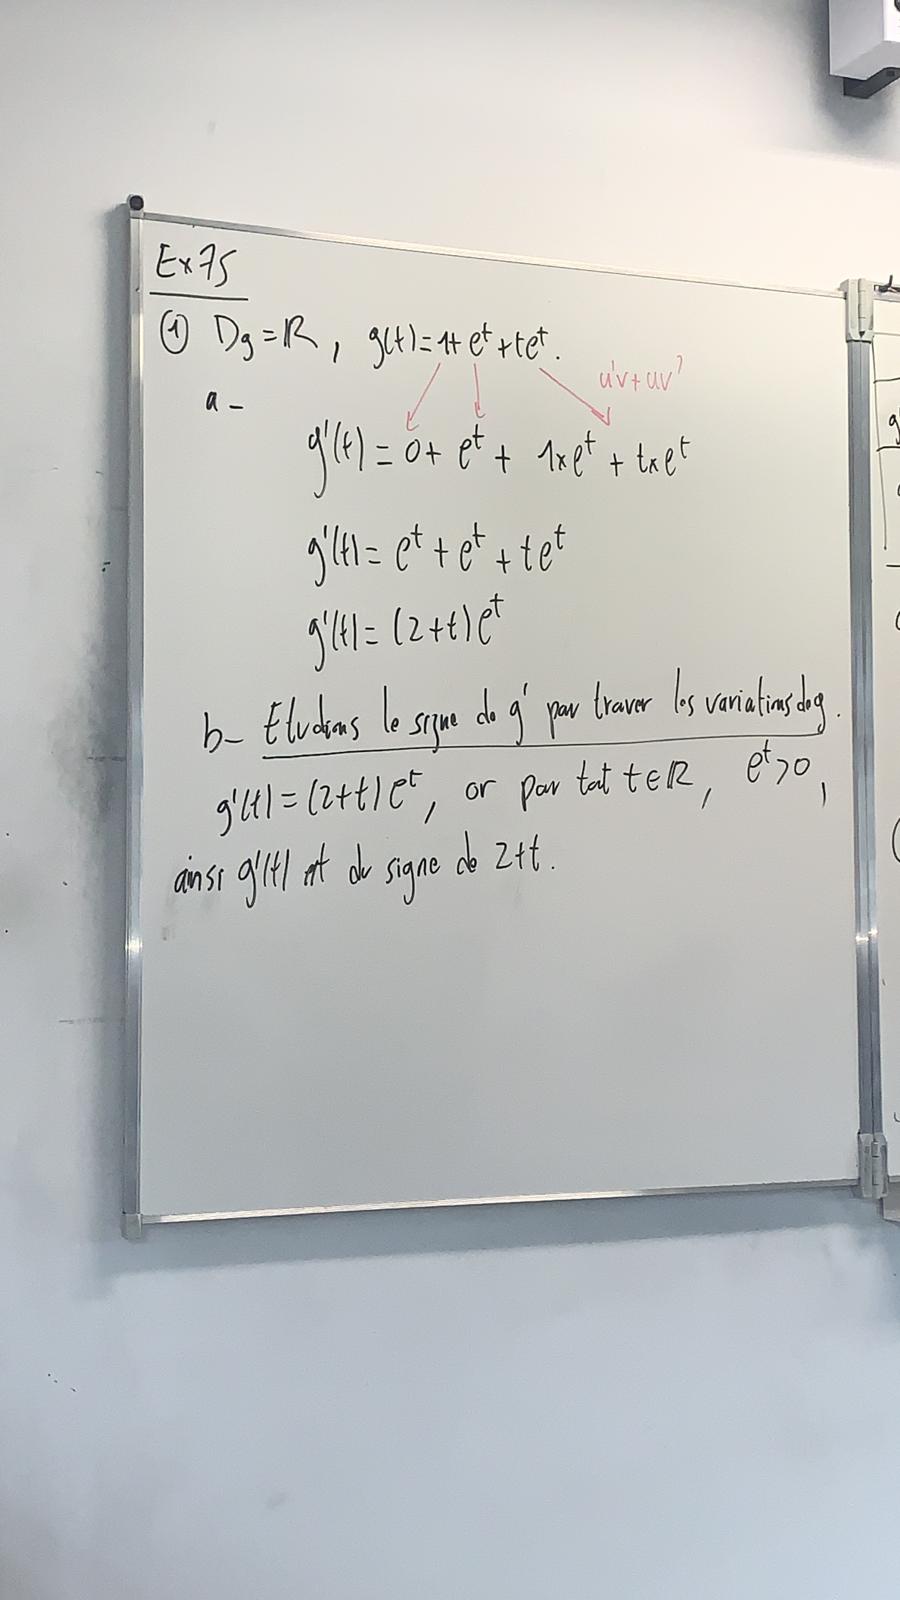 Ex 75
① Dg = ℝ, g(t) = 1 + e^t + te^t.
u'v + uv'
a –
g'(t) = 0 + e^t + 1×e^t + t×e^t
g'(t) = e^t + e^t + te^t
g'(t) = (2+t)e^t
b – Etudions le signe de g' pour trouver les variations de g.
g'(t) = (2+t)e^t, or pour tout t ∈ ℝ, e^t > 0,
ainsi g'(t) est du signe de 2+t.